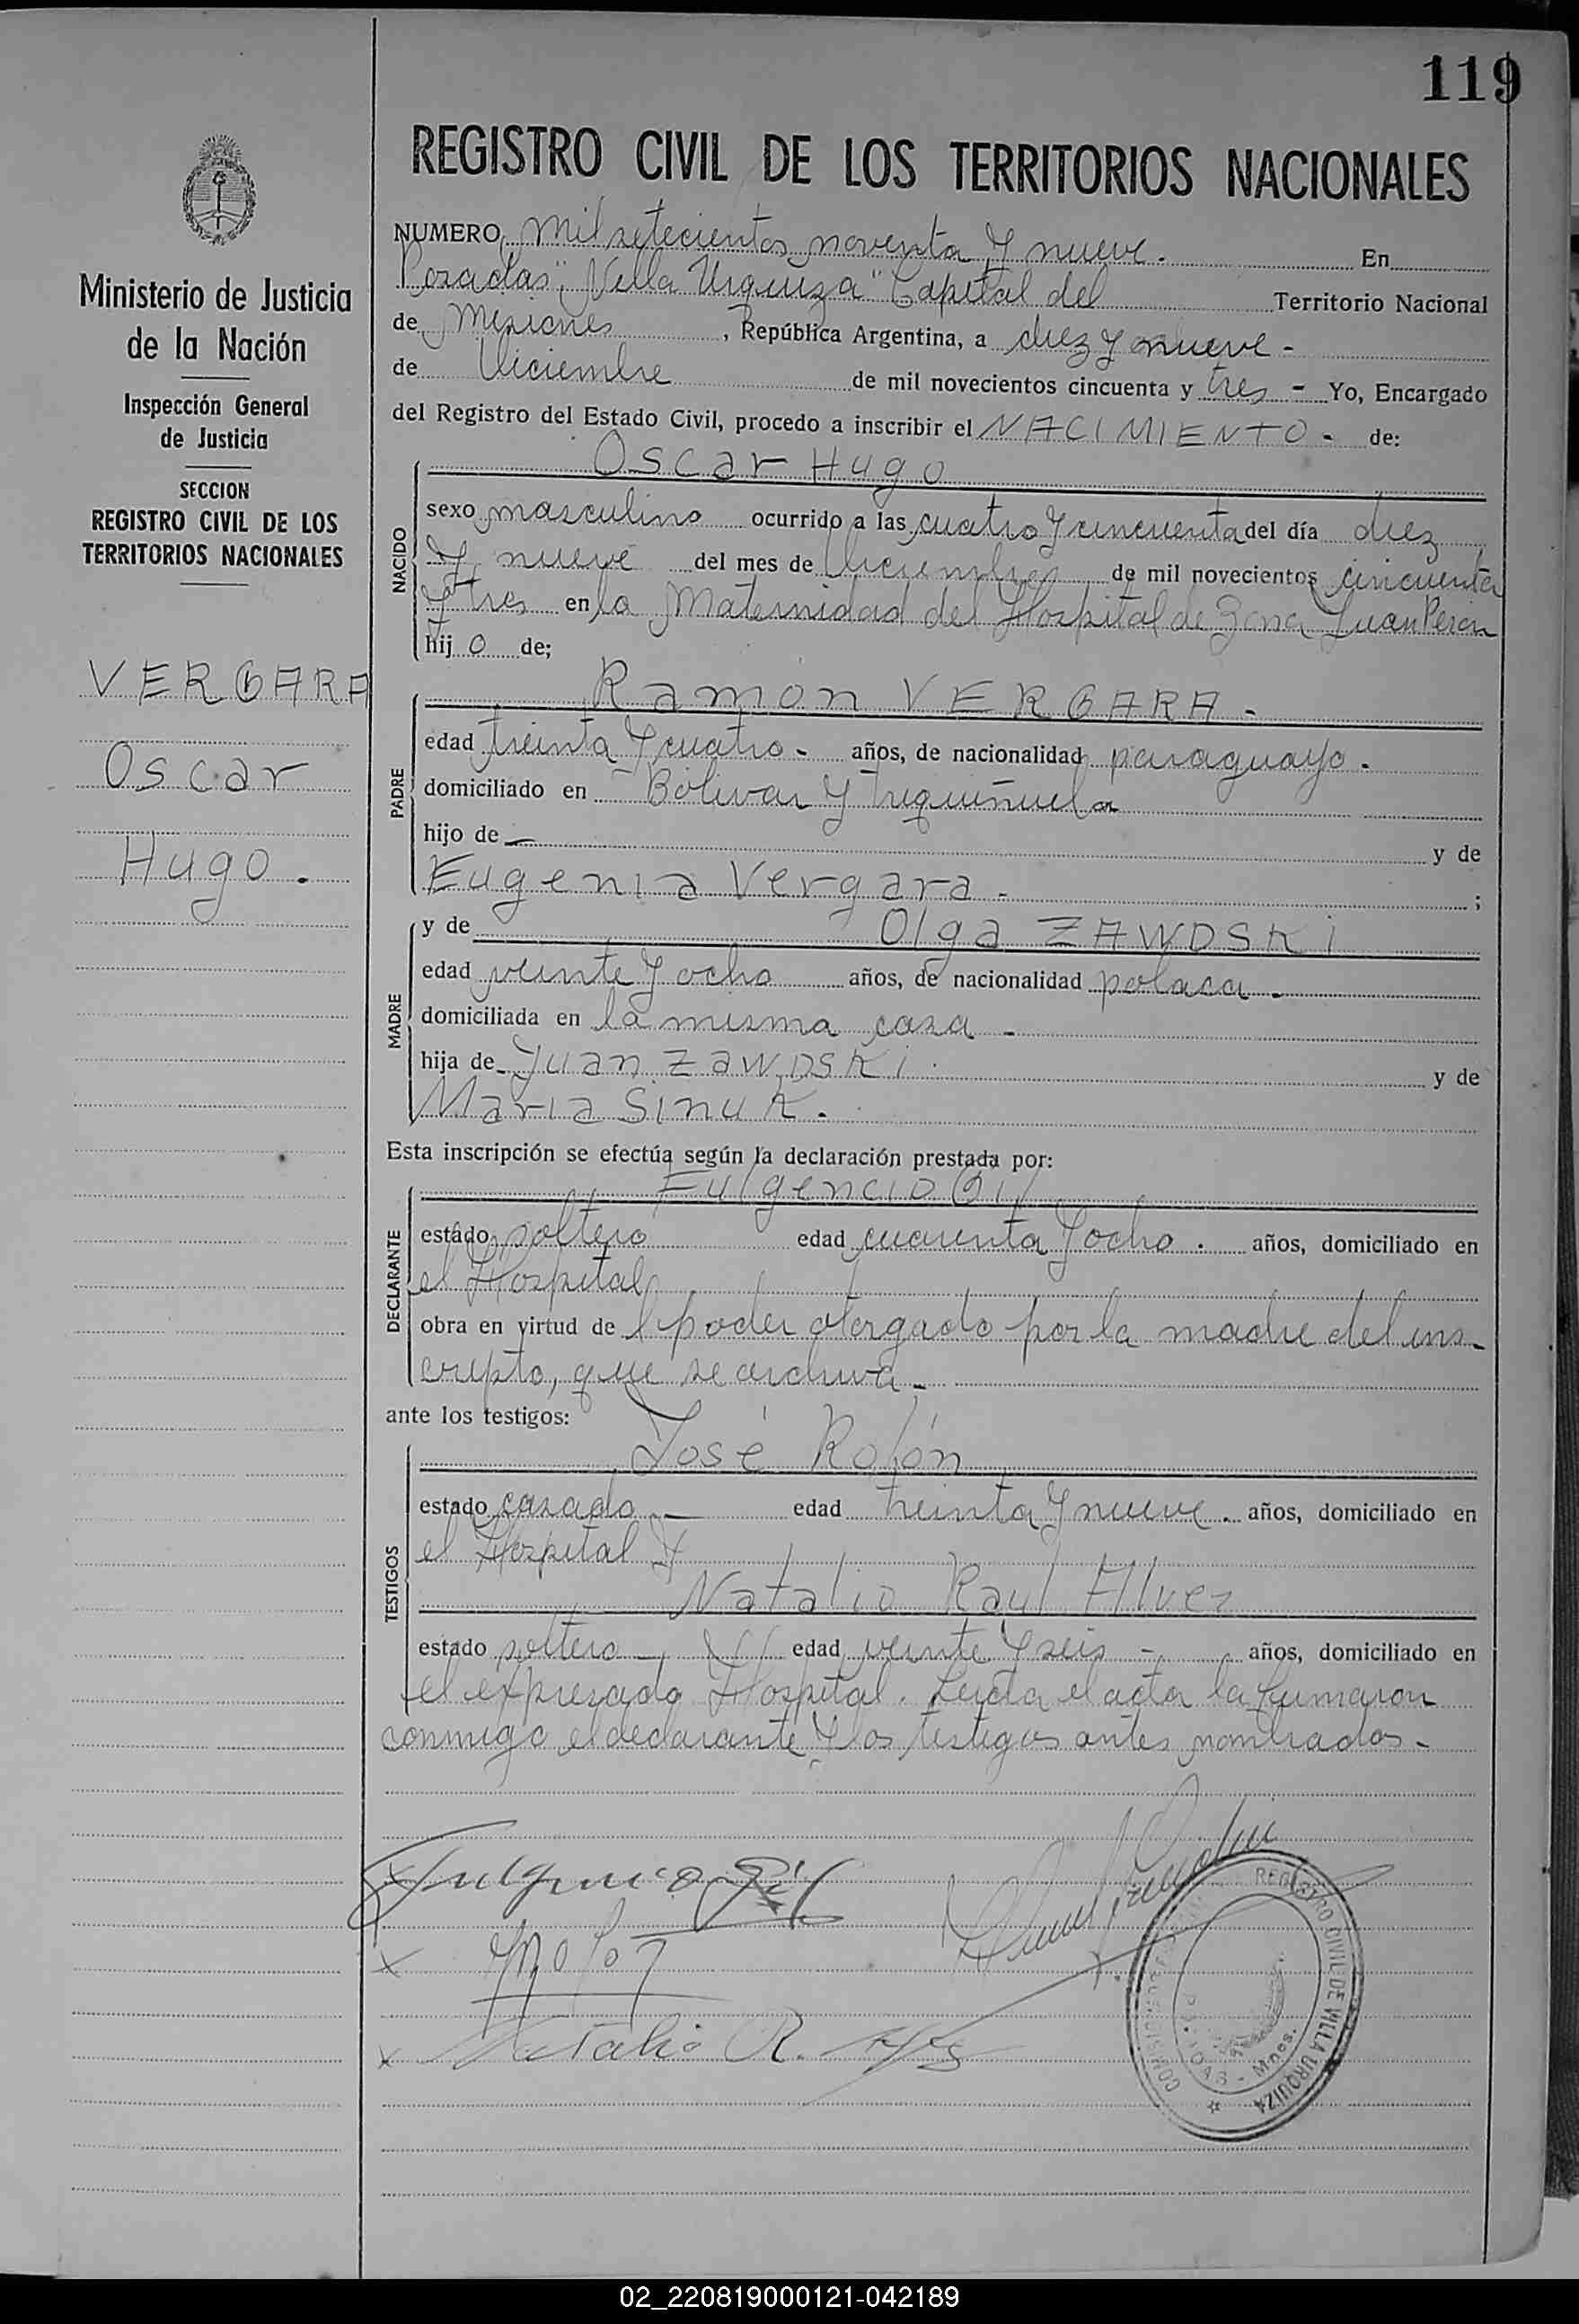 119
REGISTRO CIVIL DE LOS TERRITORIOS NACIONALES
Ministerio de Justicia
de la Nación
Inspección General
de Justicia
SECCION
REGISTRO CIVIL DE LOS
TERRITORIOS NACIONALES
VERGARA
Oscar
Hugo.
NUMERO Mil setecientos noventa y nueve. En
Posadas "Villa Urquiza" Capital del Territorio Nacional
de Misiones, República Argentina, a diez y nueve -
de Diciembre de mil novecientos cincuenta y tres - Yo, Encargado
del Registro del Estado Civil, procedo a inscribir el NACIMIENTO - de:
Oscar Hugo
NACIDO
sexo masculino ocurrido a las cuatro y cincuenta del día diez
y nueve del mes de Diciembre de mil novecientos cincuenta
y tres en la Maternidad del Hospital de Zona Juan Peron
hijo de;
Ramón VERGARA -
PADRE
edad treinta y cuatro - años, de nacionalidad paraguayo.
domiciliado en Bolivar y
hijo de — y de
Eugenia Vergara - ;
MADRE
y de Olga ZAWDSKi
edad veinte y ocho años, de nacionalidad polaca -
domiciliada en la misma casa -
hija de Juan ZAWDSKi. y de
Maria Sinuk.
Esta inscripción se efectúa según la declaración prestada por:
Fulgencio Gil
DECLARANTE
estado soltero edad cuarenta y ocho. años, domiciliado en
el Hospital
obra en virtud de l poder otorgado por la madre del ins-
cripto, que se archiva -
ante los testigos:
José Rolón
TESTIGOS
estado casado — edad treinta y nueve. años, domiciliado en
el Hospital y
Natalio Raul Alvez
estado soltero — edad veinte y seis - años, domiciliado en
el expresado Hospital. Leida el acta la firmaron
conmigo el declarante y los testigos antes nombrados -
Fulgencio Gil
Natalio R.
REGISTRO CIVIL DE VILLA URQUIZA
02_220819000121-042189